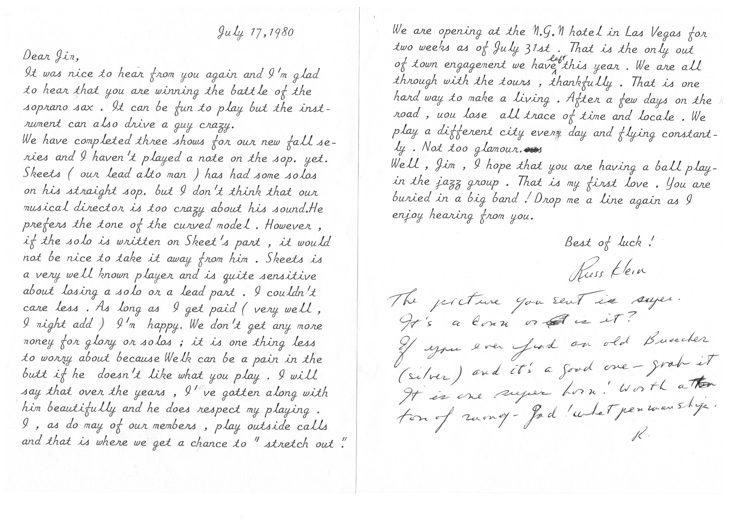 July 17,1980
Dear Jim,
It was nice to hear from you again and I'm glad
to hear that you are winning the battle of the
soprano sax . It can be fun to play but the inst-
rument can also drive a guy crazy.
We have completed three shows for our new fall se-
ries and I haven't played a note on the sop. yet.
Skeets ( our lead alto man ) has had some solos
on his straight sop. but I don't think that our
musical director is too crazy about his sound.He
prefers the tone of the curved model . However ,
if the solo is written on Skeet's part , it would
not be nice to take it away from him . Skeets is
a very well known player and is quite sensitive
about losing a solo or a lead part . I couldn't
care less . As long as I get paid ( very well ,
I night add ) I'm happy. We don't get any more
money for glory or solos ; it is one thing less
to worry about because Welk can be a pain in the
butt if he doesn't like what you play . I will
say that over the years , I've gotten along with
him beautifully and he does respect my playing .
I , as do may of our members , play outside calls
and that is where we get a chance to " stretch out "
We are opening at the M.G.M hotel in Las Vegas for
two weeks as of July 31st . That is the only out
of town engagement we have left this year . We are all
through with the tours , thankfully . That is one
hard way to make a living . After a few days on the
road , uou lose all trace of time and locale . We
play a different city every day and flying constant-
ly . Not too glamour.
Well , Jim , I hope that you are having a ball play-
in the jazz group . That is my first love . You are
buried in a big band ! Drop me a line again as I
enjoy hearing from you.
Best of luck !
Russ Klein
The picture you sent is super.
It's a Conn or is it?
If you ever find an old Buescher
(silver) and it's a good one - grab it
It is one super horn! Worth a
ton of money - God! what penmanship.
R.